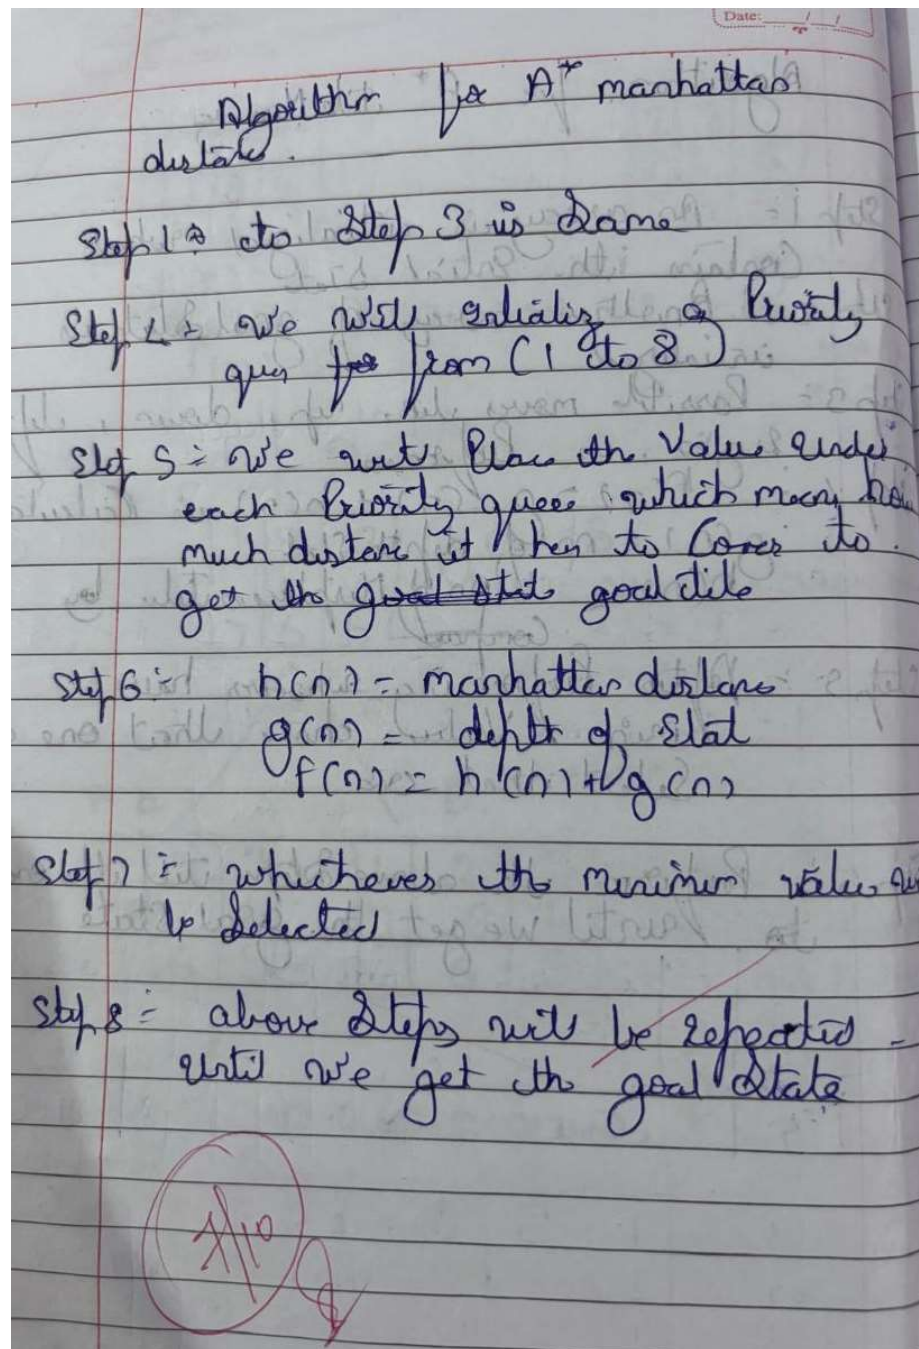 Date:
Algorithm for A* manhattan
distance.
Step 1 to Step 3 is Same
Step 4 = we will initialize a Priority
queu from (1 to 8)
Step 5 = we will Place the Value under
each Priority queee which means how
much distance it has to Cover to
get the goal stat goal tile
Step 6 = h(n) = manhattan distance
g(n) = depth of Stat
f(n) = h(n) + g(n)
Step 7 = whichever the minimum value
be Selected
Step 8 = above Steps will be repeated
until we get the goal State
/10